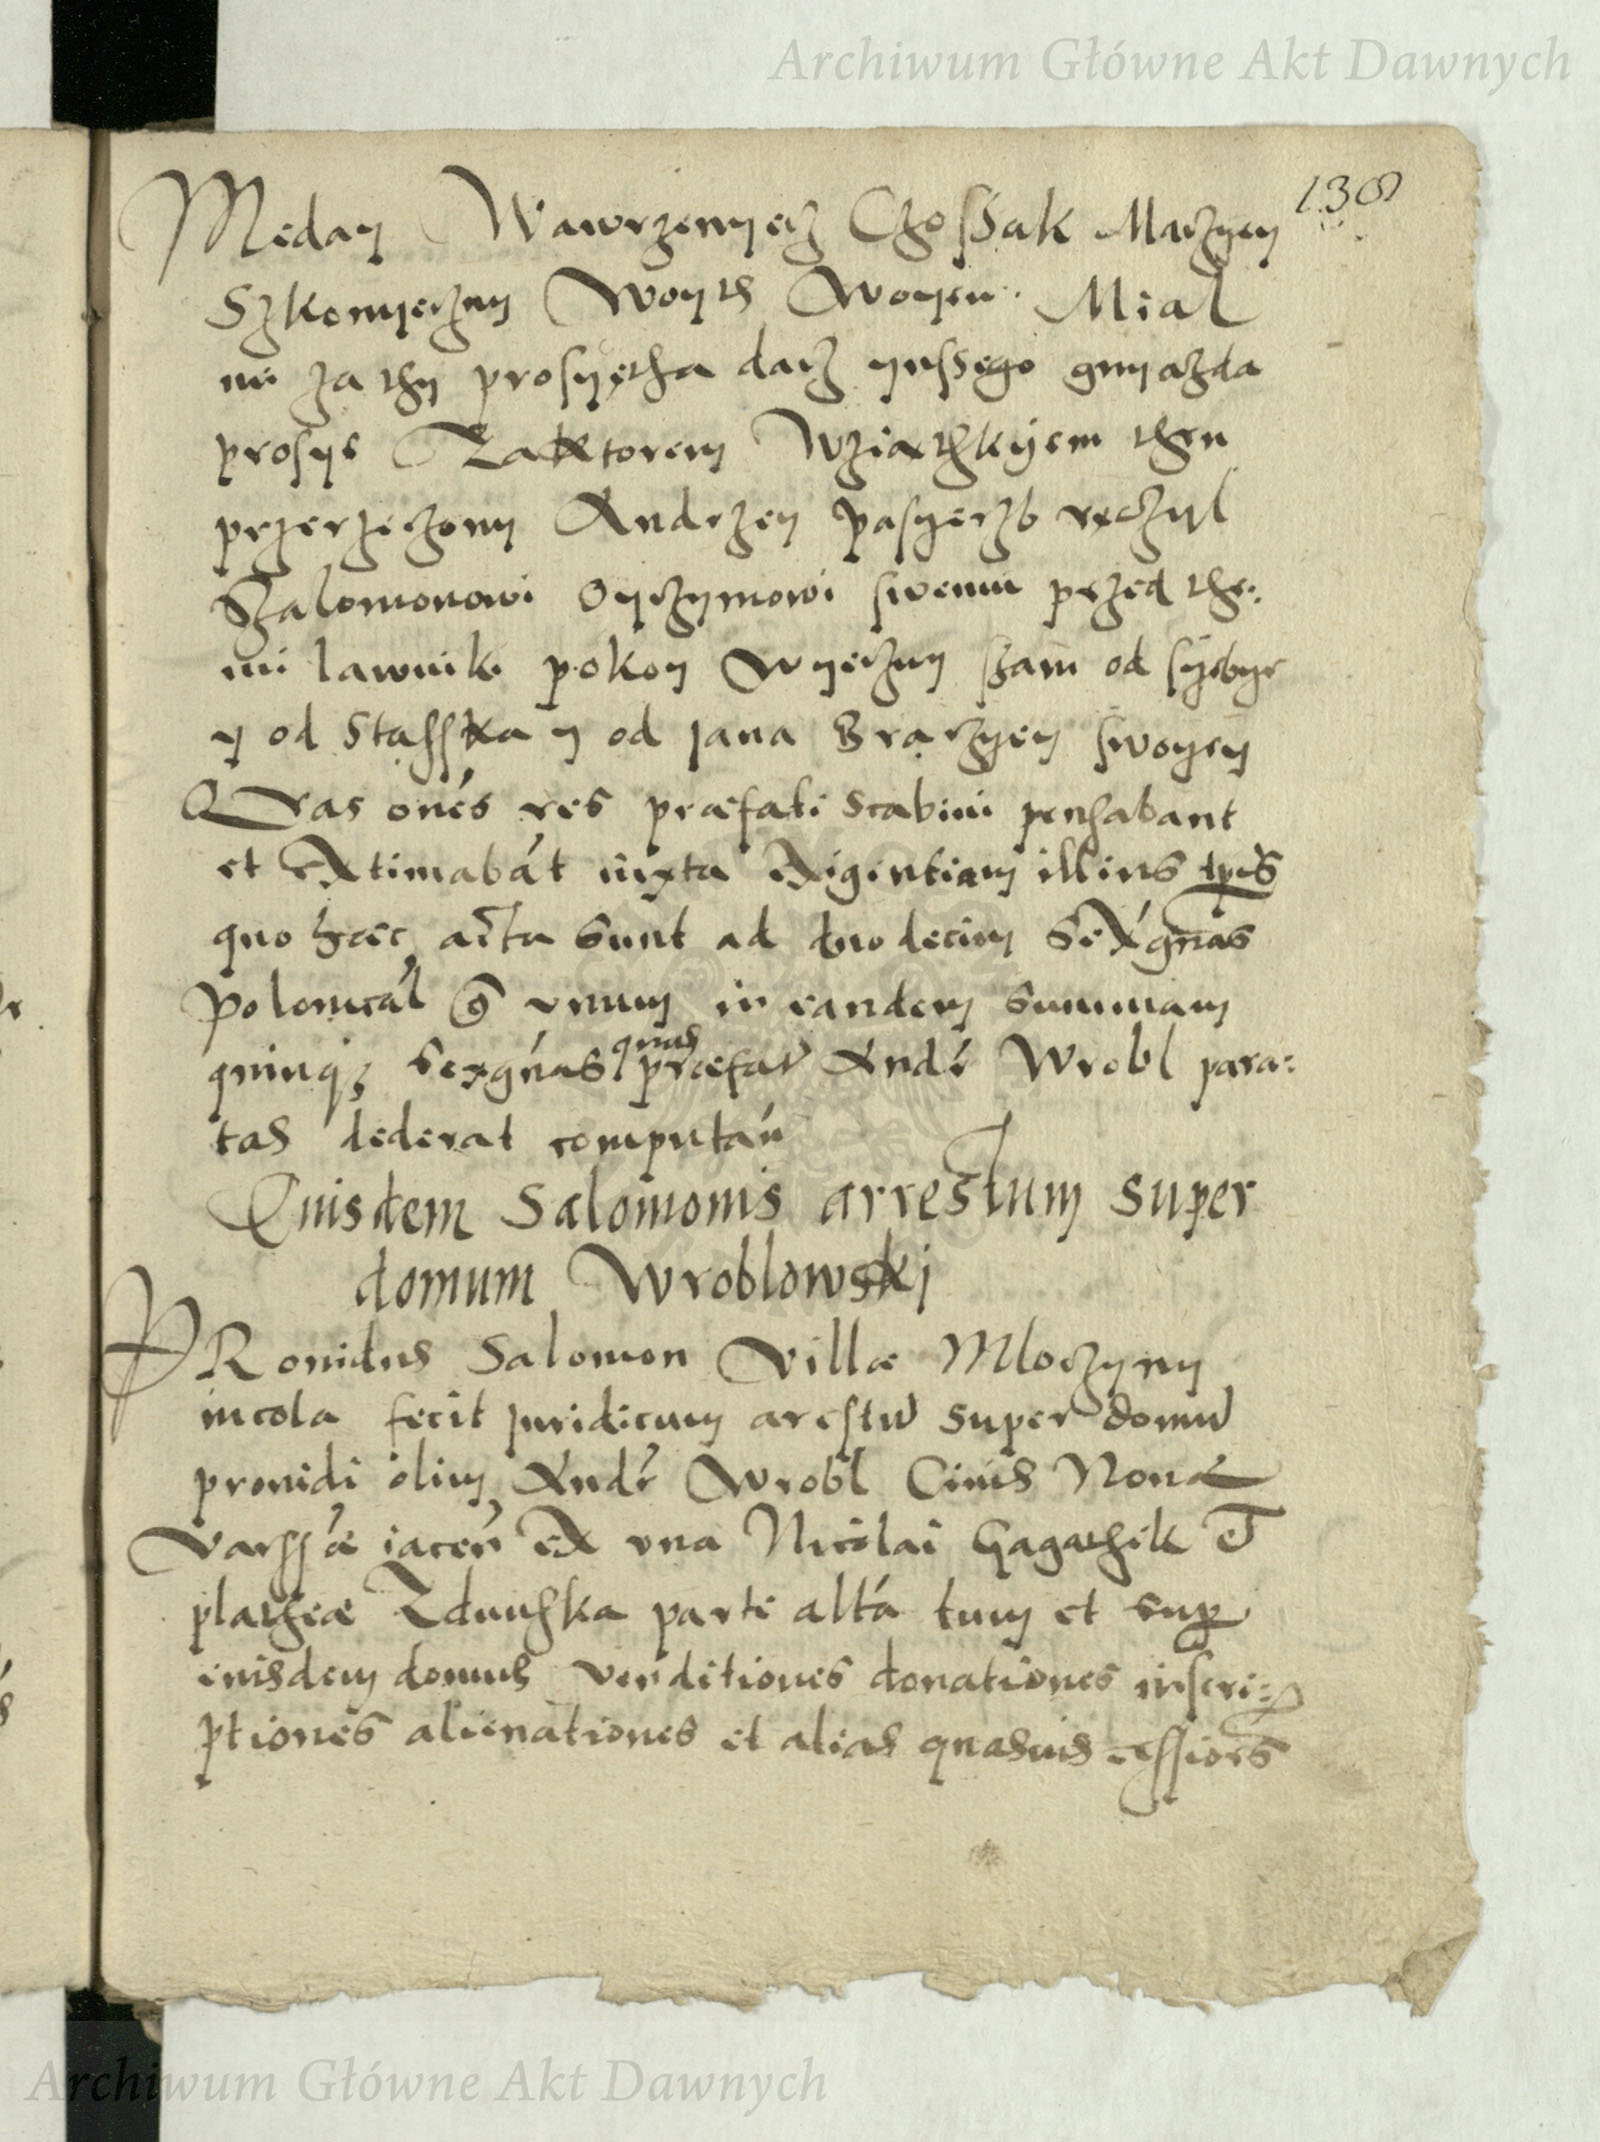 Archiwum Główne Akt Dawnych
138
Meday Wawrzenyecz Czossak Maczyey
Szkomyeczny Woyth Woyen. Mial
mi za thy prosyętha dacz ynssego gmyazda
prosye Taktorem Wziąthkyem then
przerzeczony Andrzey pasyerzb ręczyl
Szalomonowi Oyczymowi swemu przed the:
mi lawniki pokoy wyeczny szam od syebye
y od Stasska y od Jana Braczyey swoyey
Quas onés res præfati scabini pensabant
et extimabát iuxta exigentiam illius tpis
quo hæc acta sunt ad duodecim sexgnas
Polonical et unum in eandem summam
quinq; sexgnas quas præfat Andr Wrobl para:
tas dederat computań
Eiusdem Salomonis arrestum super
domum Wroblowski
PRouidus Salomon Villæ Mloczyny
incola fecit iuridicum arestu super domu
prouidi olim Andr Wrobl Ciuis Noua
Varssæ iaceń ex una Nicolai Gagathek et
platheæ Zdunska parte altá tum et sup
eiusdem domus venditiones donationes inscri:
ptiones alienationes et alias quasuis cessiones
Archiwum Główne Akt Dawnych